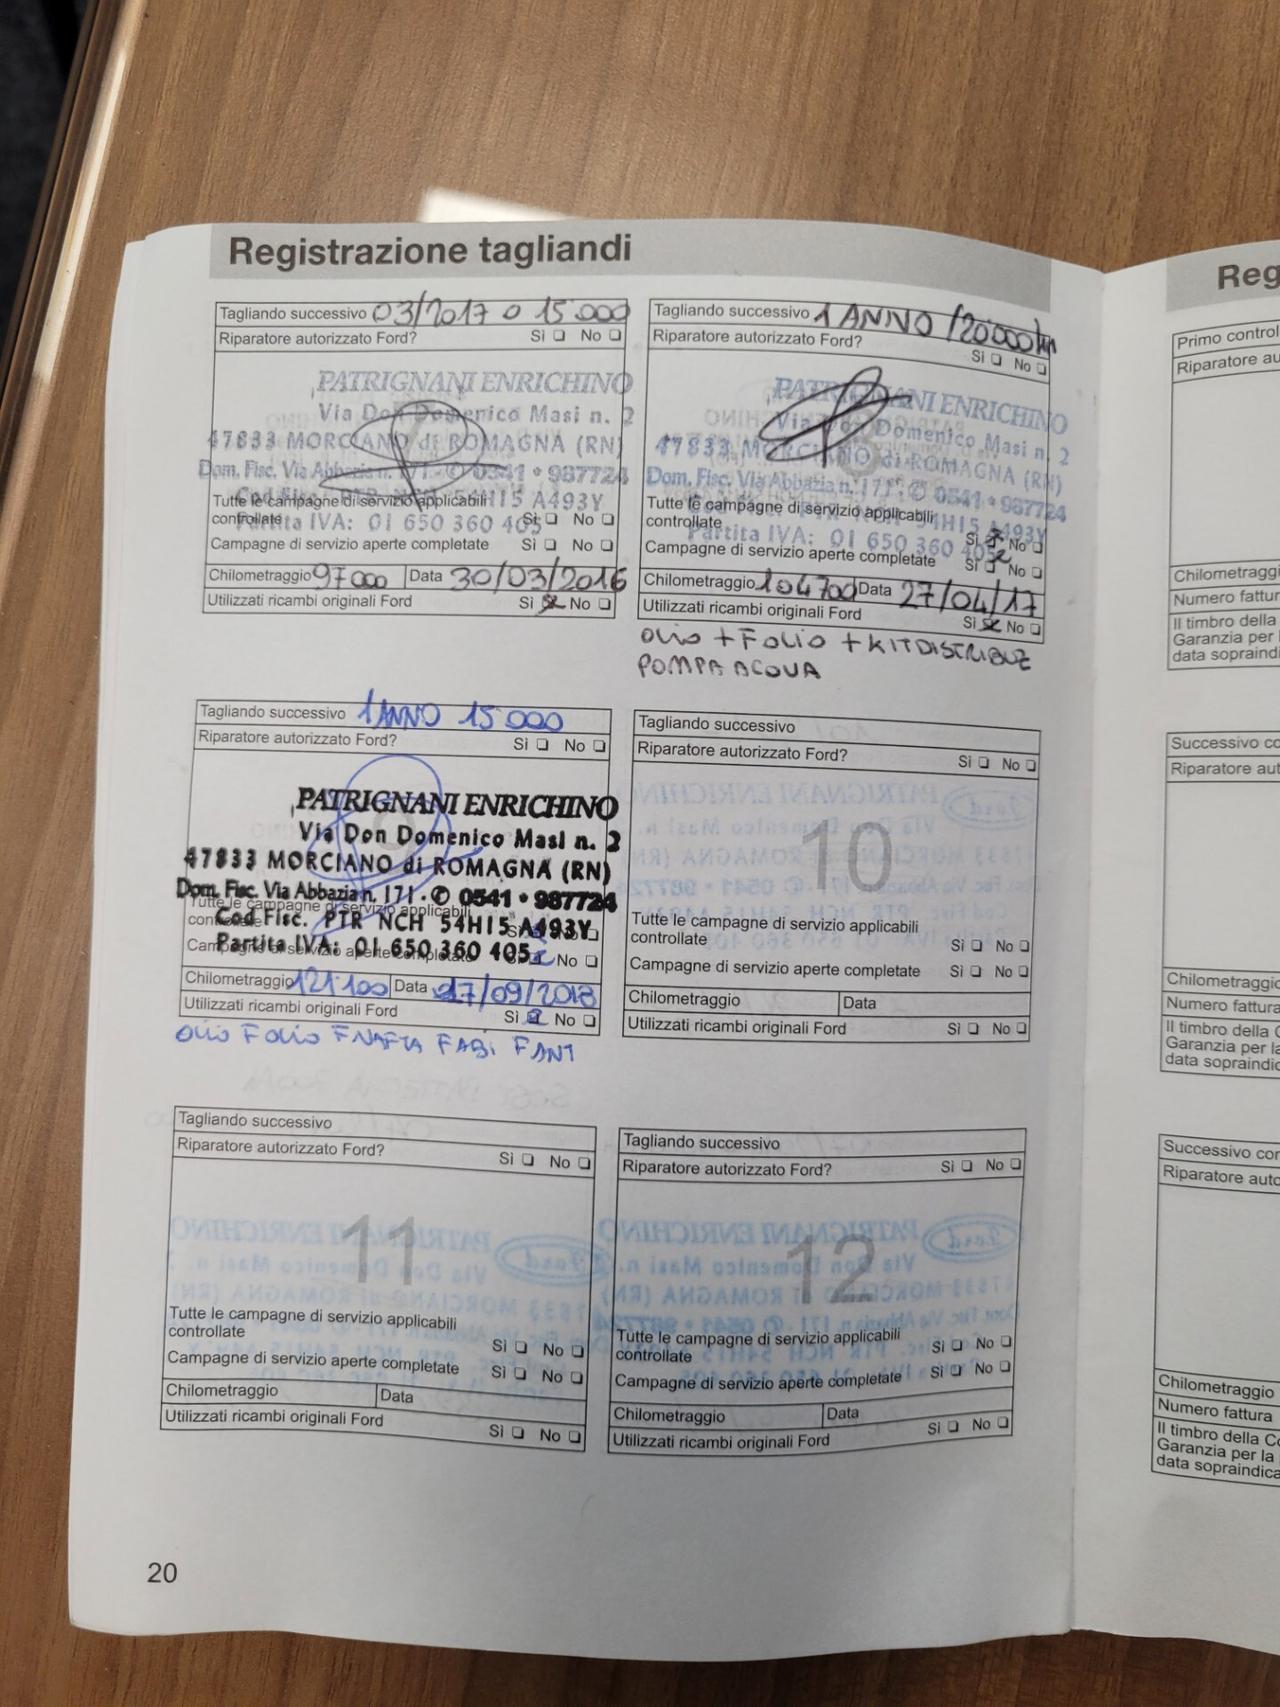 Registrazione tagliandi
Tagliando successivo 03/2017 o 15.000
Riparatore autorizzato Ford? Sì No
PATRIGNANI ENRICHINO
Via Don Domenico Masi n. 2
47833 MORCIANO di ROMAGNA (RN)
Dom. Fisc. Via Abbazia n. 171 - 0541 • 987724
Tutte le campagne di servizio applicabili
controllate Sì No
Partita IVA: 01 650 360 405
Campagne di servizio aperte completate Sì No
Chilometraggio 97000 Data 30/03/2016
Utilizzati ricambi originali Ford Sì No
Tagliando successivo 1 ANNO /20000 km
Riparatore autorizzato Ford?
Sì No
PATRIGNANI ENRICHINO
Via Don Domenico Masi n. 2
47833 MORCIANO di ROMAGNA (RN)
Dom. Fisc. Via Abbazia n. 171 - 0541 • 987724
Tutte le campagne di servizio applicabili
controllate Sì No
Partita IVA: 01 650 360 405
Campagne di servizio aperte completate Sì No
Chilometraggio 104700 Data 27/04/17
Utilizzati ricambi originali Ford Sì No
OLIO + FOLIO + KIT DISTRIBUZ
POMPA ACQUA
Tagliando successivo 1 ANNO 15000
Riparatore autorizzato Ford? Sì No
PATRIGNANI ENRICHINO
Via Don Domenico Masi n. 2
47833 MORCIANO di ROMAGNA (RN)
Dom. Fisc. Via Abbazia n. 171 - 0541 • 987724
Tutte le campagne di servizio applicabili
controllate No
Cod Fisc. PTR NCH 54H15 A493Y
Partita IVA: 01 650 360 405
Campagne di servizio aperte completate No
Chilometraggio 121.100 Data 17/09/2018
Utilizzati ricambi originali Ford Sì No
OLIO FOLIO FNAFTA FABI FANT
Tagliando successivo
Riparatore autorizzato Ford? Sì No
10
Tutte le campagne di servizio applicabili
controllate Sì No
Campagne di servizio aperte completate Sì No
Chilometraggio Data
Utilizzati ricambi originali Ford Sì No
Tagliando successivo
Riparatore autorizzato Ford? Sì No
11
Tutte le campagne di servizio applicabili
controllate Sì No
Campagne di servizio aperte completate Sì No
Chilometraggio Data
Utilizzati ricambi originali Ford Sì No
Tagliando successivo
Riparatore autorizzato Ford? Sì No
12
Tutte le campagne di servizio applicabili
controllate Sì No
Campagne di servizio aperte completate Sì No
Chilometraggio Data
Utilizzati ricambi originali Ford Sì No
20
Reg
Primo control
Riparatore au
Chilometraggi
Numero fattur
Il timbro della
Garanzia per
data sopraindi
Successivo co
Riparatore aut
Chilometraggio
Numero fattura
Il timbro della C
Garanzia per la
data sopraindic
Successivo cor
Riparatore auto
Chilometraggio
Numero fattura
Il timbro della Co
Garanzia per la
data sopraindica